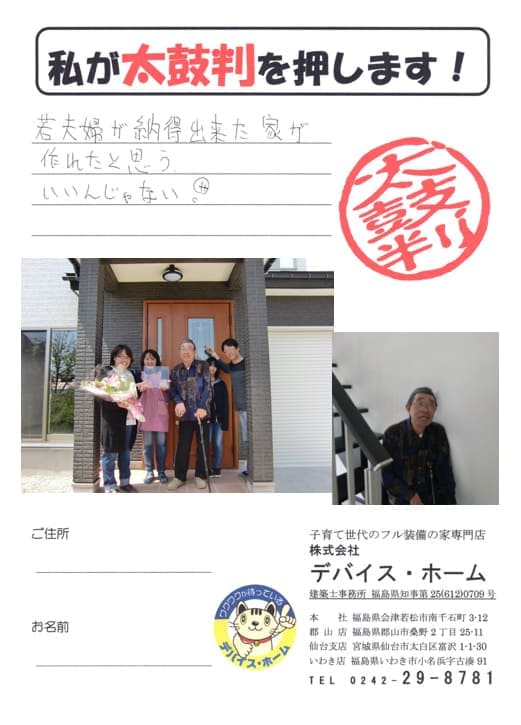 私が太鼓判を押します！
若夫婦が納得出来た家が
作れたと思う。
いいんじゃない!
太鼓判
ご住所
お名前
ワクワクが待っている
デバイス・ホーム
子育て世代のフル装備の家専門店
株式会社
デバイス・ホーム
建築士事務所 福島県知事第25(612)0709号
本　　社 福島県会津若松市南千石町3-12
郡 山 店 福島県郡山市桑野2丁目25-11
仙台支店 宮城県仙台市太白区富沢1-1-30
いわき店 福島県いわき市小名浜字古湊91
TEL 0242-29-8781